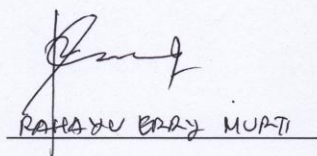 RAHAYU ERRY MURTI